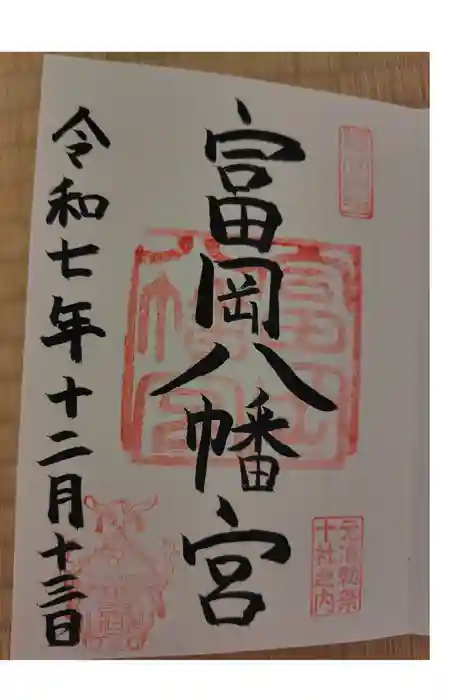 富岡八幡宮
元准勅祭
十社之内
令和七年十二月十三日